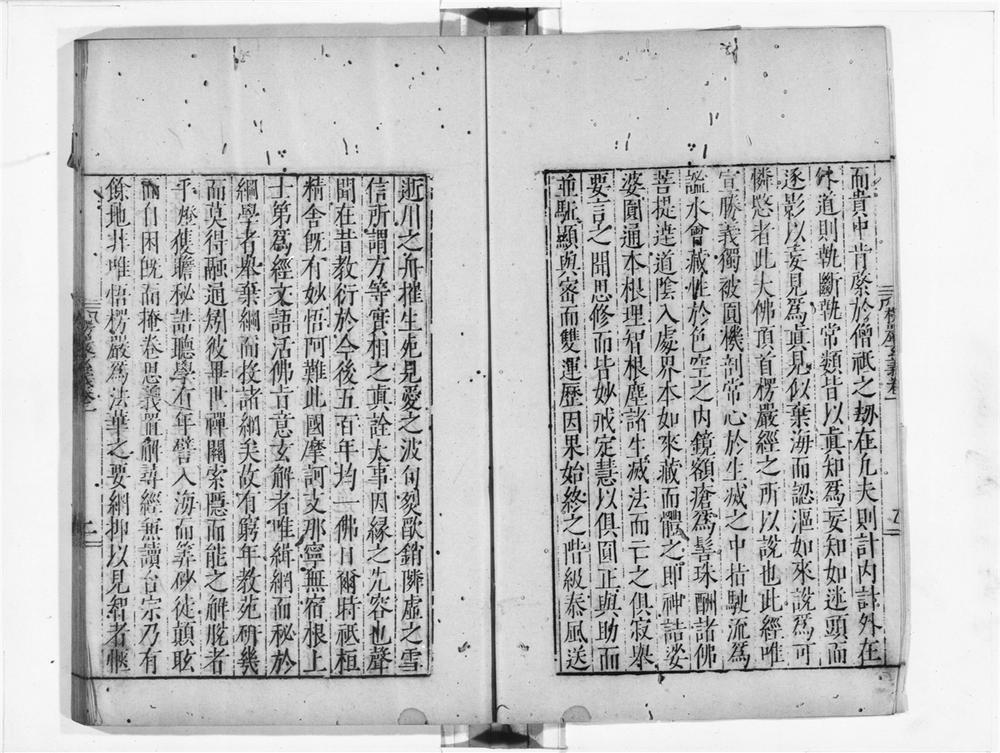 而貴中肯綮於僧祇之劫在凢夫則計内計外在
外道則執斷執常類皆以眞知爲妄知如迷頭而
逐影以妄見爲眞見似棄海而認漚如來說爲可
憐愍者此大佛頂首楞嚴經之所以說也此經唯
宣勝義獨被圓機剖常心於生滅之中指駛流爲
謐水會藏性於色空之内鏡額瘡爲髻珠酬諸佛
菩提達道陰入處界本如來藏而體之即神詰娑
婆圓通本根理智根塵諸生滅法而亡之俱寂舉
要言之聞思修而皆妙戒定慧以俱圓正與助而
並駈顯與密而雙運歷因果始終之階級泰風送
逝川之舟擢生死見愛之波旬炎歊銷隣虛之雪
信所謂方等實相之眞詮大事因緣之先容也聲
聞在昔教衍於今後五百年均一佛日爾時祇桓
精舍旣有妙悟阿難此國摩訶支那寧無宿根上
士第爲經文語活佛旨意玄解者唯緝網而秘於
綱學者舉棄綱而投諸網矣故有窮年教苑研幾
而莫得融通矧彼畢世禪關索隱而能之解脫者
乎 隻瞻秘誥聽學有年譬入海而筭砂徒顛眩
而自困旣而掩卷思義置解尋經無讀台宗乃有
餘地井唯悟楞嚴爲法華之要綱抑以見智者愜